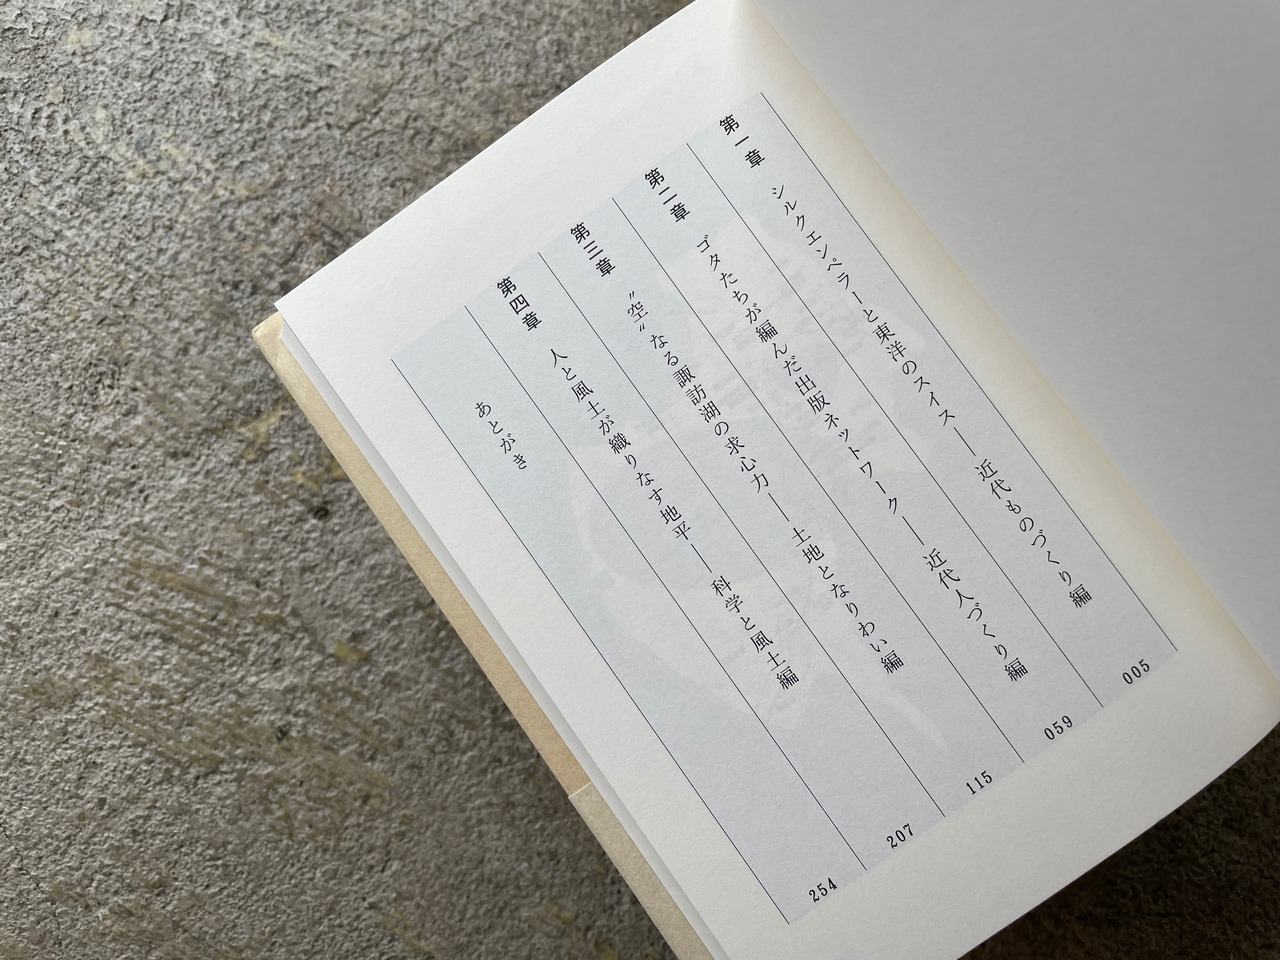 第一章 シルクエンペラーと東洋のスイス―近代ものづくり編 005
第二章 ゴタたちが編んだ出版ネットワーク―近代人づくり編 059
第三章 〝空〟なる諏訪湖の求心力―土地となりわい編 115
第四章 人と風土が織りなす地平―科学と風土編 207
あとがき 254